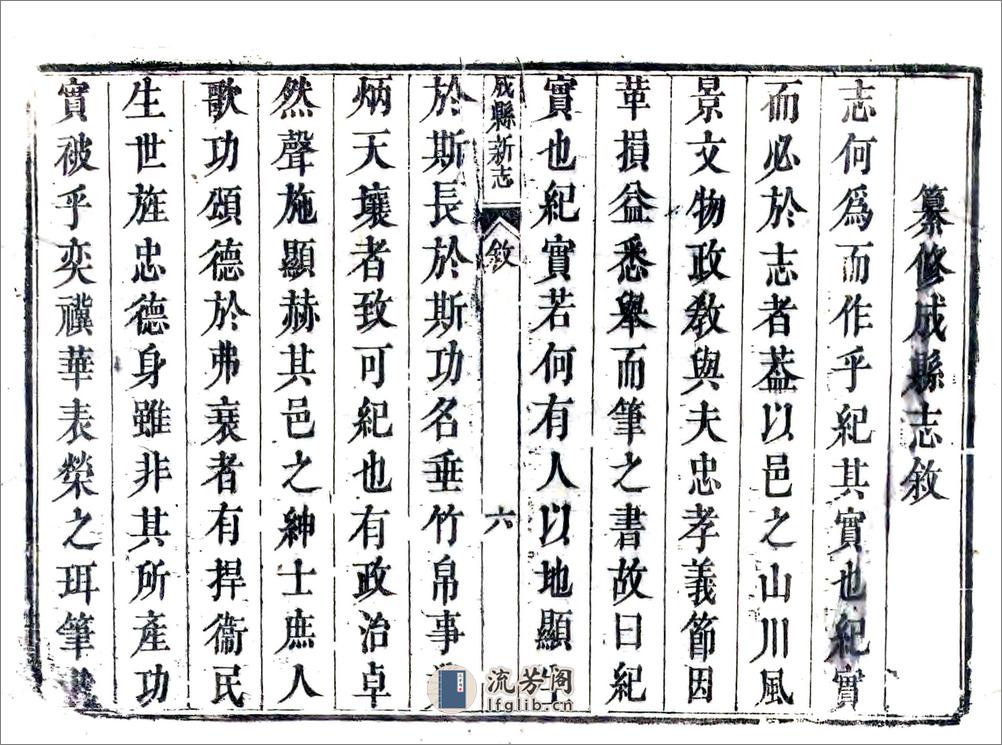 纂修成縣志敘
志何爲而作乎紀其實也紀實
而必於志者葢以邑之山川風
景文物政敎與夫忠孝義節因
革損益悉舉而筆之書故曰紀
實也紀實若何有人以地顯
成縣新志 敘 六
於斯長於斯功名垂竹帛事
炳天壤者致可紀也有政治卓
然聲施顯赫其邑之紳士庶人
歌功頌德於弗衰者有捍衞民
生世旌忠德身雖非其所產功
實被乎奕禩華表榮之珥筆
流芳阁
lfglib.cn